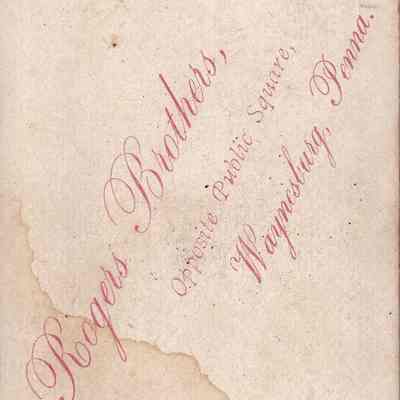 Rogers Brothers,
Opposite Public Square,
Waynesburg, Penna.